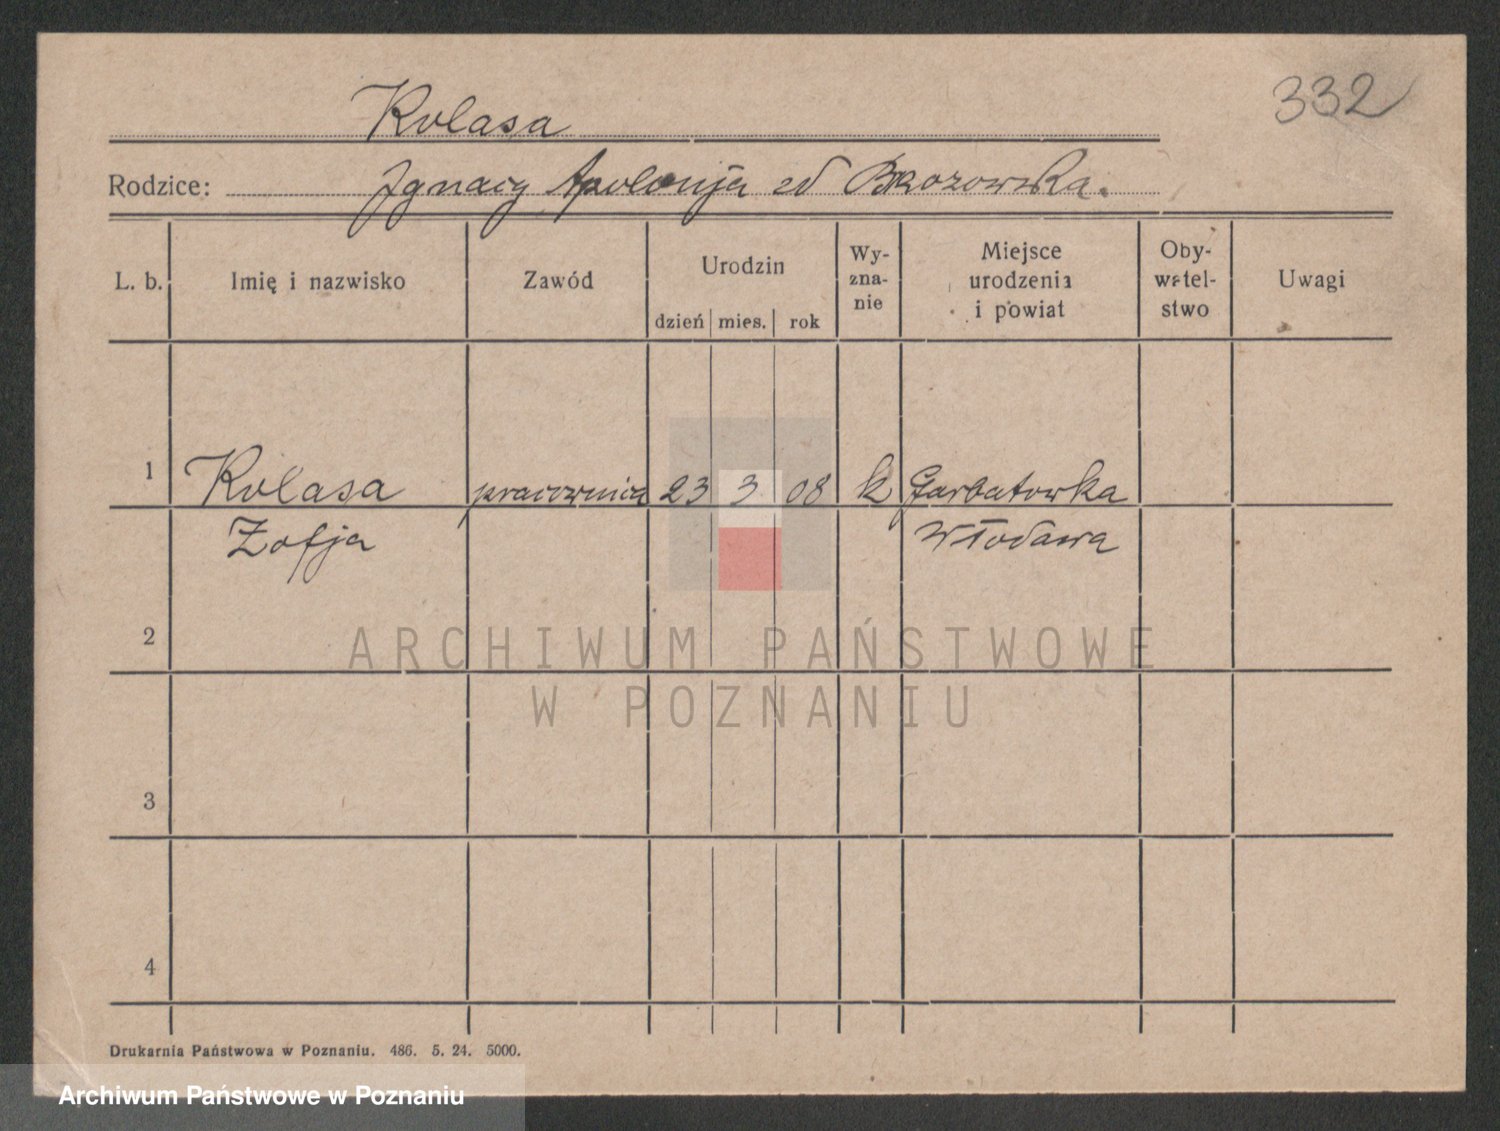 332
Kolasa
Rodzice: Ignacy Apolonja zd Brzozowska.
L. b. Imię i nazwisko Zawód Urodzin dzień mies. rok Wy-zna-nie Miejsce urodzenia i powiat Oby-watel-stwo Uwagi
1 Kolasa pracownica 23 3 08 k Garbatowka
Zofja Włodawa
2
ARCHIWUM PAŃSTWOWE
W POZNANIU
3
4
Drukarnia Państwowa w Poznaniu. 486. 5. 24. 5000.
Archiwum Państwowe w Poznaniu